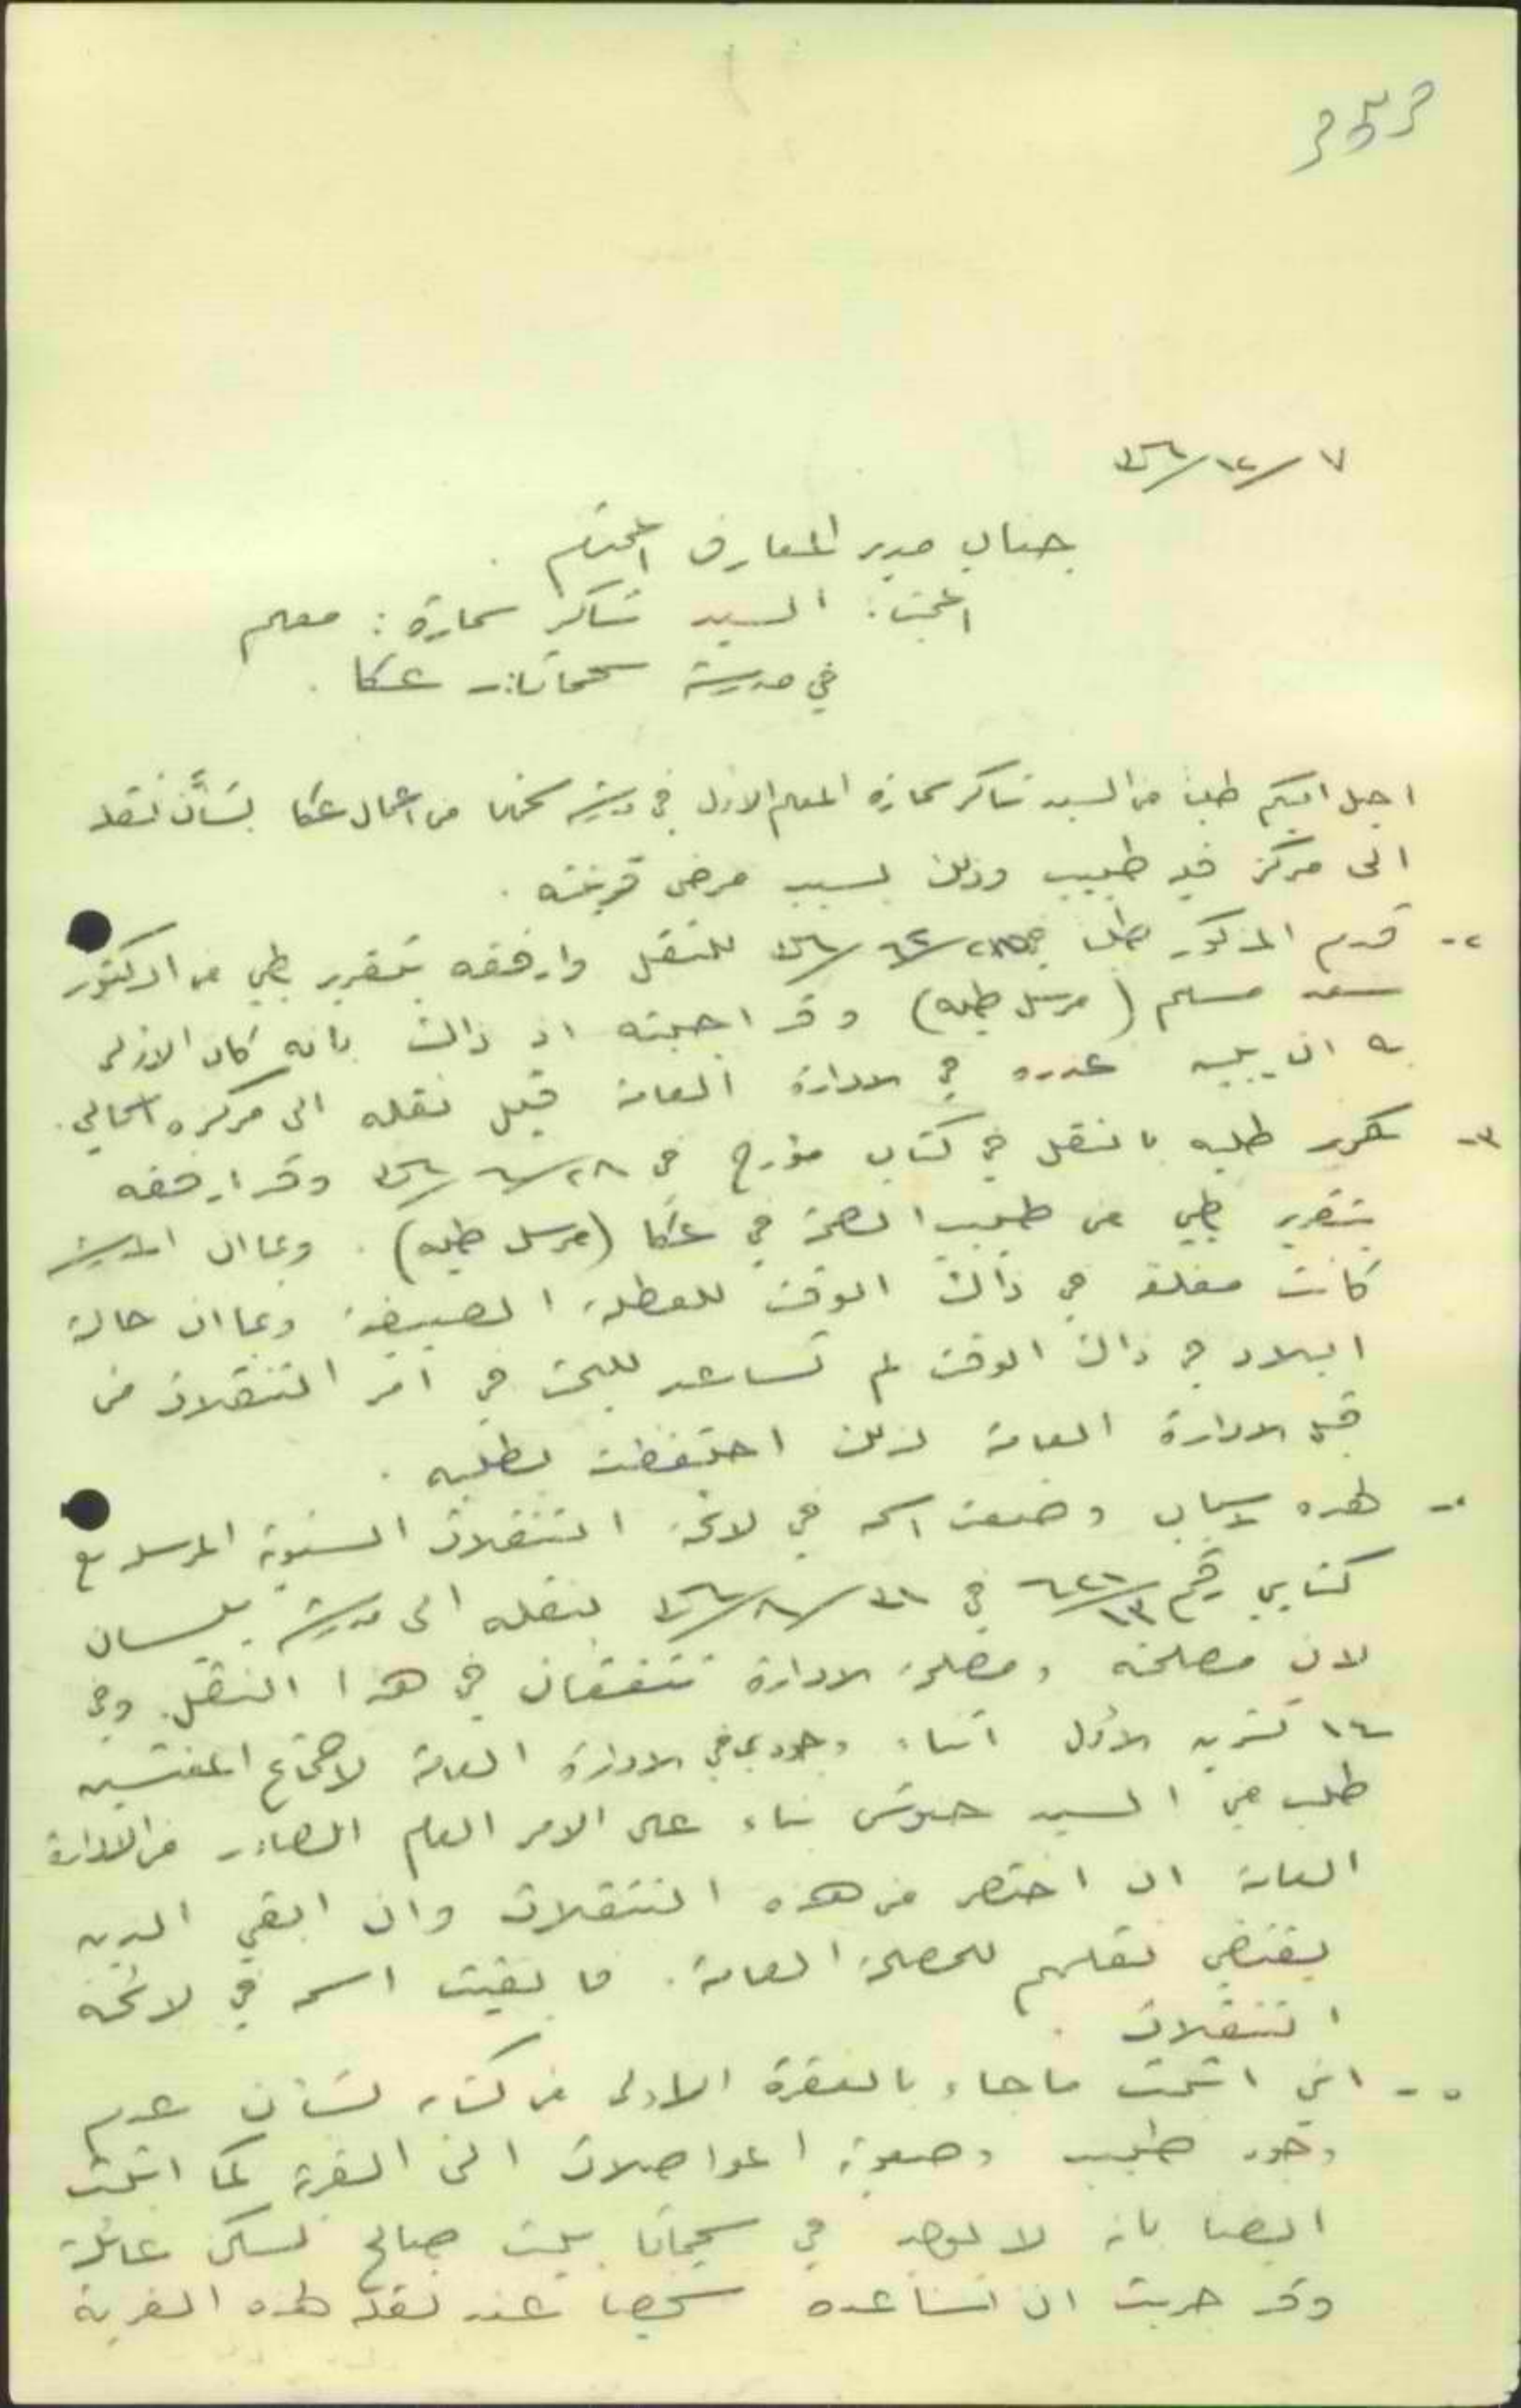 ٧/١٢/٣٦
جناب مدير المعارف المحترم
المبحث: السيد شاكر سمارة: معلم
في مدرسة سحماتا - عكا .
احيل اليكم طلبا من السيد شاكر سمارة المعلم الاول في مدرسة سحماتا من اعمال عكا بشأن نقله
الى مركز فيه طبيب وذلك بسبب مرض قرينته .
٢- قدم المذكور طلبا في للنقل وارفقه بتقرير طبي من الدكتور
سعد مسلم (مرسل طيه) وقد اجبته اذ ذاك بانه كان الاولى
به ان يبين عذره في الادارة العامة قبل نقله الى مركزه الحالي.
٣- كرر طلبه بالنقل في كتاب مؤرخ في ٢٨/٦/٣٦ وقد ارفقه
بتقرير طبي من طبيب الصحة في عكا (مرسل طيه) . وبما ان المدرسة
كانت مغلقة في ذاك الوقت للعطلة الصيفية وبما ان حالة
البلاد في ذاك الوقت لم تساعد للبحث في امر التنقلات من
قبل الادارة العامة لذلك احتفظت بطلبه .
لهذه الاسباب وضعت اسمه في لائحة التنقلات السنوية المرسلة مع
كتابي رقم في ٣١/٨/٣٦ بنقله الى مدرسة بيسان
لان مصلحته ومصلحة الادارة تتفقان في هذا النقل. وفي
١٤ تشرين الاول اثناء وجودي في الادارة العامة لاجتماع المفتشين
طلب مني السيد بناء على الامر العام الصادر من الادارة
العامة ان اختصر من هذه التنقلات وان ابقي الذين
يقتضي نقلهم للمصلحة العامة. فابقيت اسمه في لائحة
التنقلات .
٥- اني اثبت ما جاء بالفقرة الاولى من كتابه بشأن عدم
وجود طبيب وصعوبة المواصلات الى القرية كما اثبت
ايضا بانه لا يوجد في سحماتا بيت صالح لسكن عائلة
وقد جربت ان اساعده شخصيا عند نقله لهذه القرية